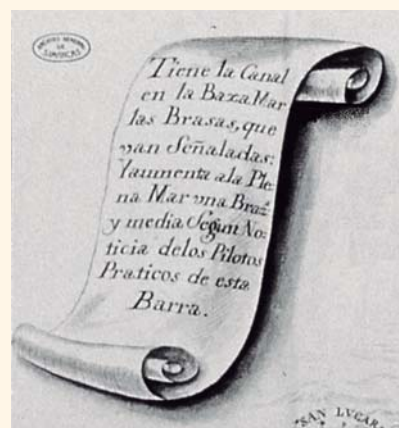 ARCHIVO GENERAL
DE
SIMANCAS
Tiene la Canal
en la Baxa Mar
las Brasas, que
van Señaladas:
Yaumenta ala Ple
na Mar vna Braz.
y media Segun No:
ticia delos Pilotos
Praticos de esta
Barra.
SAN LVCAR